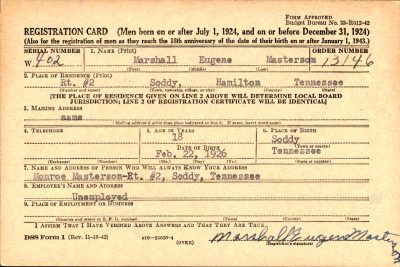 FORM APPROVED
Budget Bureau No. 33-R012-42
REGISTRATION CARD (Men born on or after July 1, 1924, and on or before December 31, 1924)
(Also for the registration of men as they reach the 18th anniversary of the date of their birth on or after January 1, 1943.)
SERIAL NUMBER 1. NAME (Print) ORDER NUMBER
W 402 Marshall Eugene Masterson 13146
(First) (Middle) (Last)
2. PLACE OF RESIDENCE (Print)
Rt. #2 Soddy, Hamilton Tennessee
(Number and street) (Town, township, village, or city) (County) (State)
[THE PLACE OF RESIDENCE GIVEN ON LINE 2 ABOVE WILL DETERMINE LOCAL BOARD
JURISDICTION; LINE 2 OF REGISTRATION CERTIFICATE WILL BE IDENTICAL]
3. MAILING ADDRESS
same
[Mailing address if other than place indicated on line 2. If same, insert word same]
4. TELEPHONE 5. AGE IN YEARS 6. PLACE OF BIRTH
18 Soddy
DATE OF BIRTH (Town or county)
Feb. 22, 1926 Tennessee
(Exchange) (Number) (Mo.) (Day) (Yr.) (State or country)
7. NAME AND ADDRESS OF PERSON WHO WILL ALWAYS KNOW YOUR ADDRESS
Monroe Masterson-Rt. #2, Soddy, Tennessee
8. EMPLOYER'S NAME AND ADDRESS
Unemployed
9. PLACE OF EMPLOYMENT OR BUSINESS
(Number and street or R. F. D. number) (Town) (County) (State)
I AFFIRM THAT I HAVE VERIFIED ABOVE ANSWERS AND THAT THEY ARE TRUE.
DSS Form 1 (Rev. 11-16-42) (OVER) Marshall Eugene Masterson
(Registrant's signature)